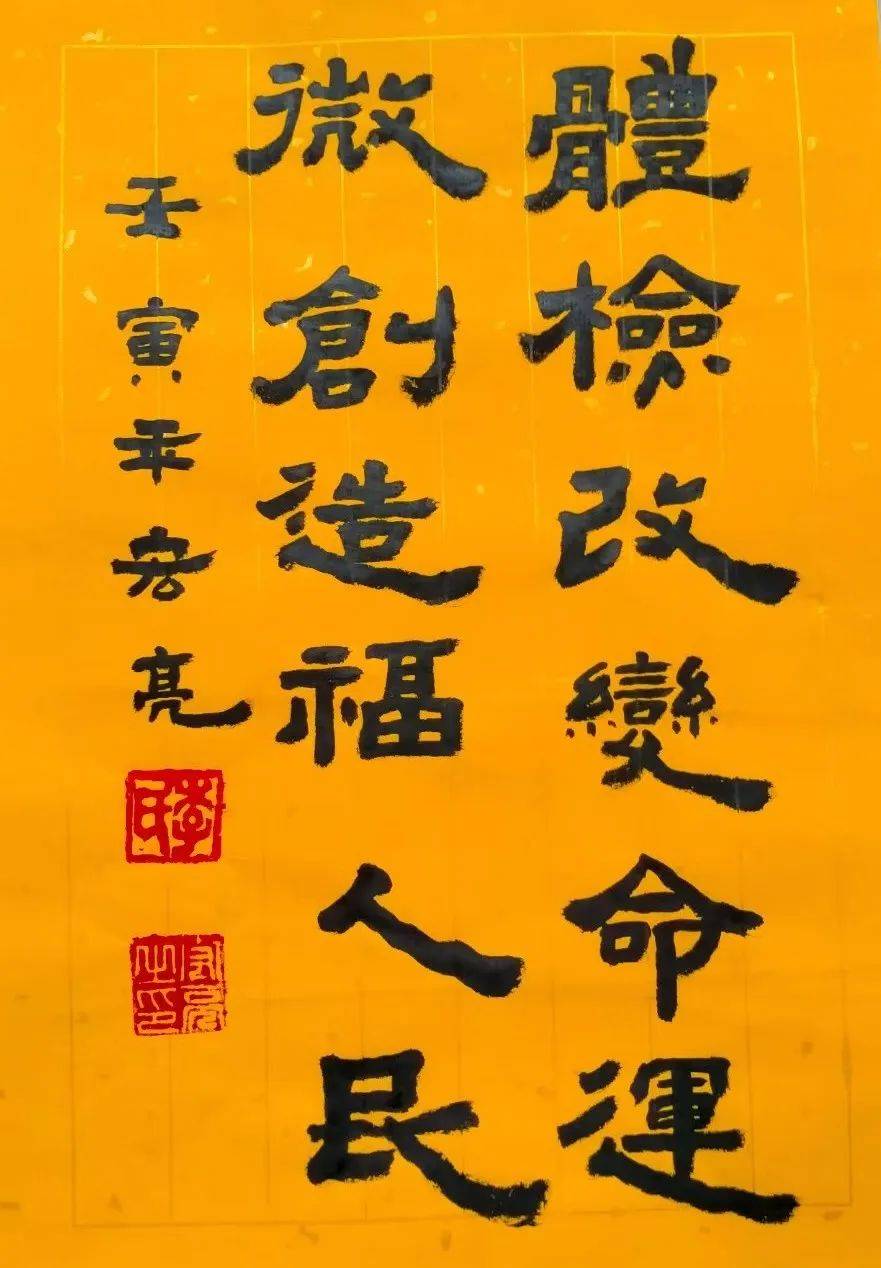 體檢改變命運
微創造福人民
壬寅年宏亮